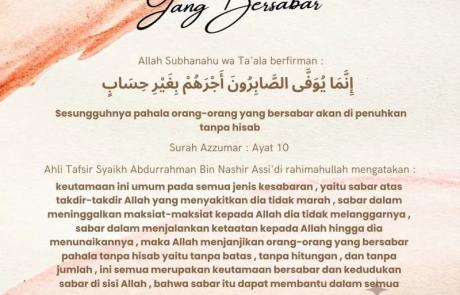 Yang Bersabar
Allah Subhanahu wa Ta'ala berfirman :
إِنَّمَا يُوَفَّى الصَّابِرُونَ أَجْرَهُمْ بِغَيْرِ حِسَابٍ
Sesungguhnya pahala orang-orang yang bersabar akan di penuhkan
tanpa hisab
Surah Azzumar : Ayat 10
Ahli Tafsir Syaikh Abdurrahman Bin Nashir Assi'di rahimahullah mengatakan :
keutamaan ini umum pada semua jenis kesabaran , yaitu sabar atas
takdir-takdir Allah yang menyakitkan dia tidak marah , sabar dalam
meninggalkan maksiat-maksiat kepada Allah dia tidak melanggarnya ,
sabar dalam menjalankan ketaatan kepada Allah hingga dia
menunaikannya , maka Allah menjanjikan orang-orang yang bersabar
pahala tanpa hisab yaitu tanpa batas , tanpa hitungan , dan tanpa
jumlah , ini semua merupakan keutamaan bersabar dan kedudukan
sabar di sisi Allah , bahwa sabar itu dapat membantu dalam semua